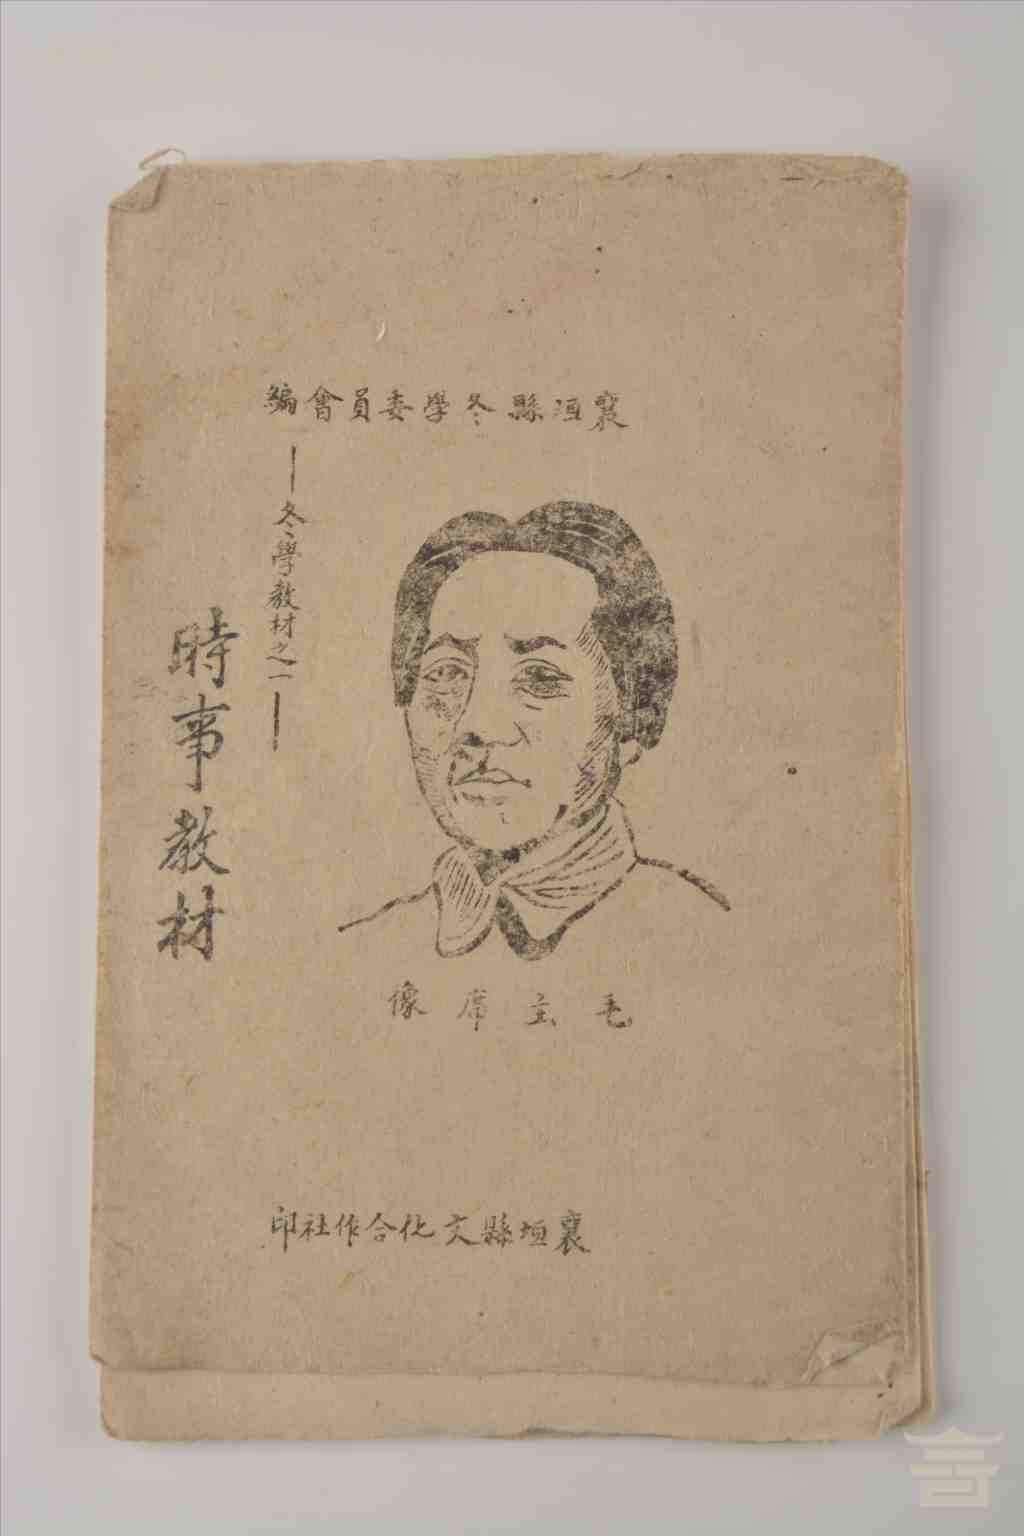 襄垣縣冬學委員會編
冬學教材之一
時事教材
毛主席像
襄垣縣文化合作社印